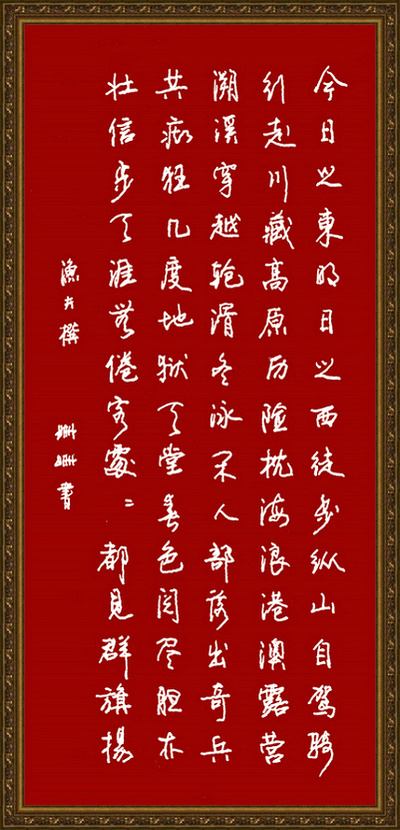 今日之東明日之西徒步纵山自驾骑
行走川藏高原历险枕海浪港澳露营
溯溪穿越轮滑冬泳闲人部落出奇兵
共痴狂几度地狱天堂春色阅尽胆亦
壮信步天涯無倦客處〻都見群旗揚
漁夫撰
書